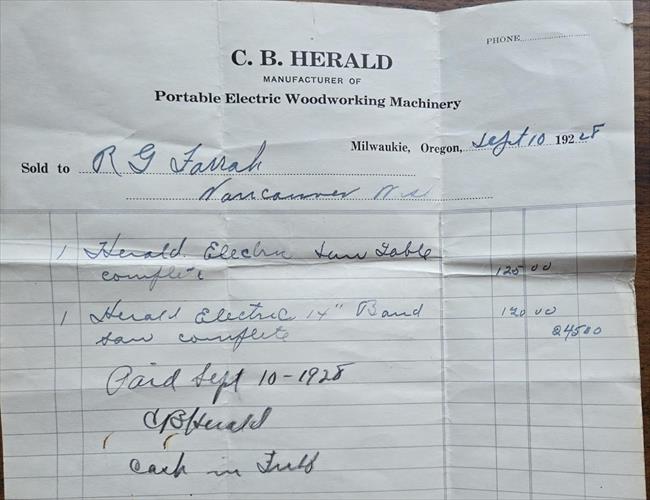 PHONE
C. B. HERALD
MANUFACTURER OF
Portable Electric Woodworking Machinery
Milwaukie, Oregon, Sept 10 1928
Sold to R G Farrah
Vancouver Wn
1 Herald Electric Saw Table
complete 125 00
1 Herald Electric 14" Band 120 00
saw complete 24500
Paid Sept 10-1928
CBHerald
Cash in Full